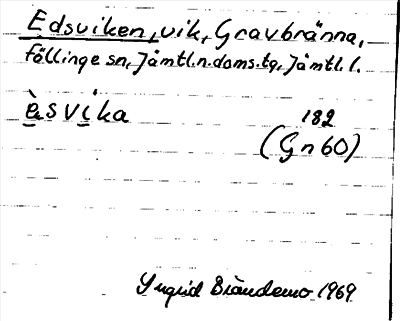 Edsviken, vik, Gravbränna,
Föllinge sn, Jämtl.n.doms.tg, Jämtl. l.
è̲svi̲ka
182
(Gn 60)
Yngrid Brändemo 1969